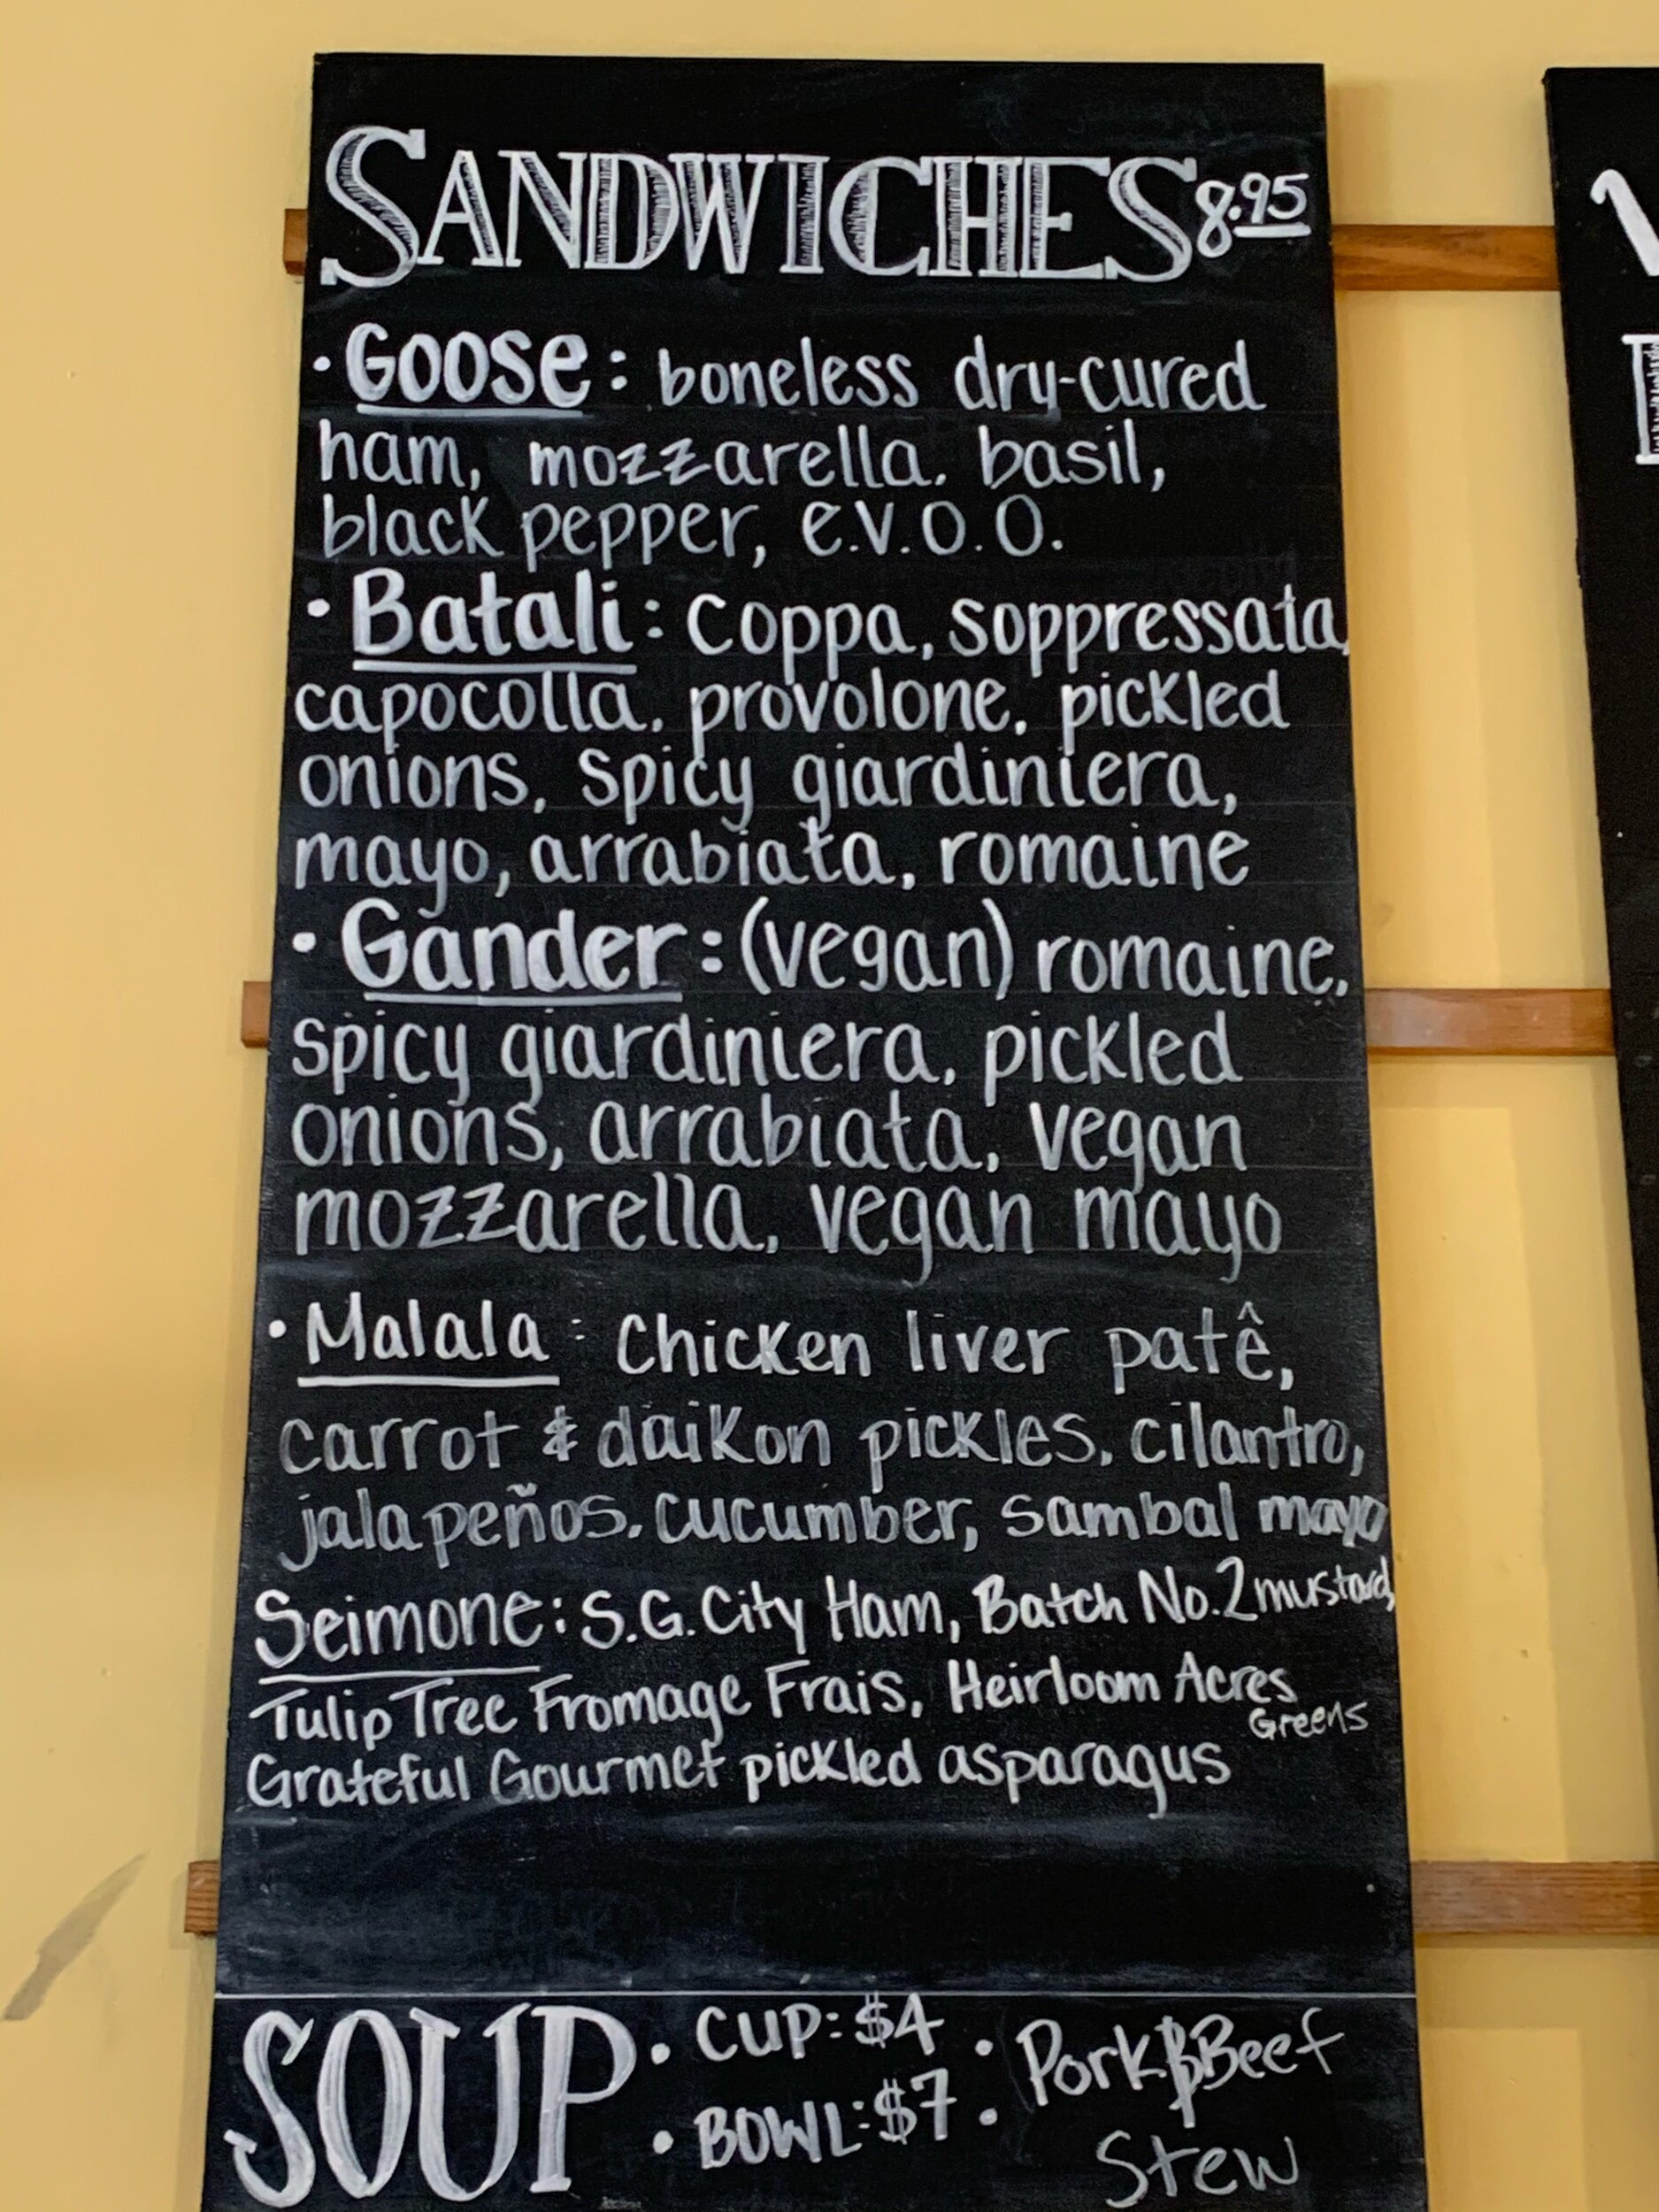 SANDWICHES 8.95
• GOOSE: boneless dry-cured
ham, mozzarella. basil,
black pepper, e.v.o.o.
• Batali: Coppa, soppressata,
capocolla. provolone. pickled
onions, spicy giardiniera,
mayo, arrabiata, romaine
• Gander: (vegan) romaine,
spicy giardiniera, pickled
onions, arrabiata, vegan
mozzarella, vegan mayo
• Malala: Chicken liver patê,
carrot & daikon pickles, cilantro,
jalapeños. cucumber, sambal mayo
Seimone: S.G. City Ham, Batch No.2 mustard,
Tulip Tree Fromage Frais, Heirloom Acres
Greens
Grateful Gourmet pickled asparagus
SOUP • CUP: $4 • Pork & Beef
• BOWL: $7 • Stew